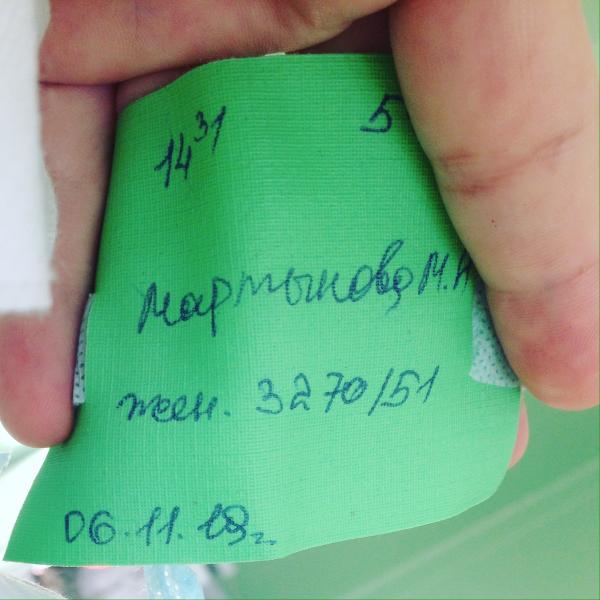 14³¹ 5
Мартынова М.
жен. 3270/51
06.11.18г.